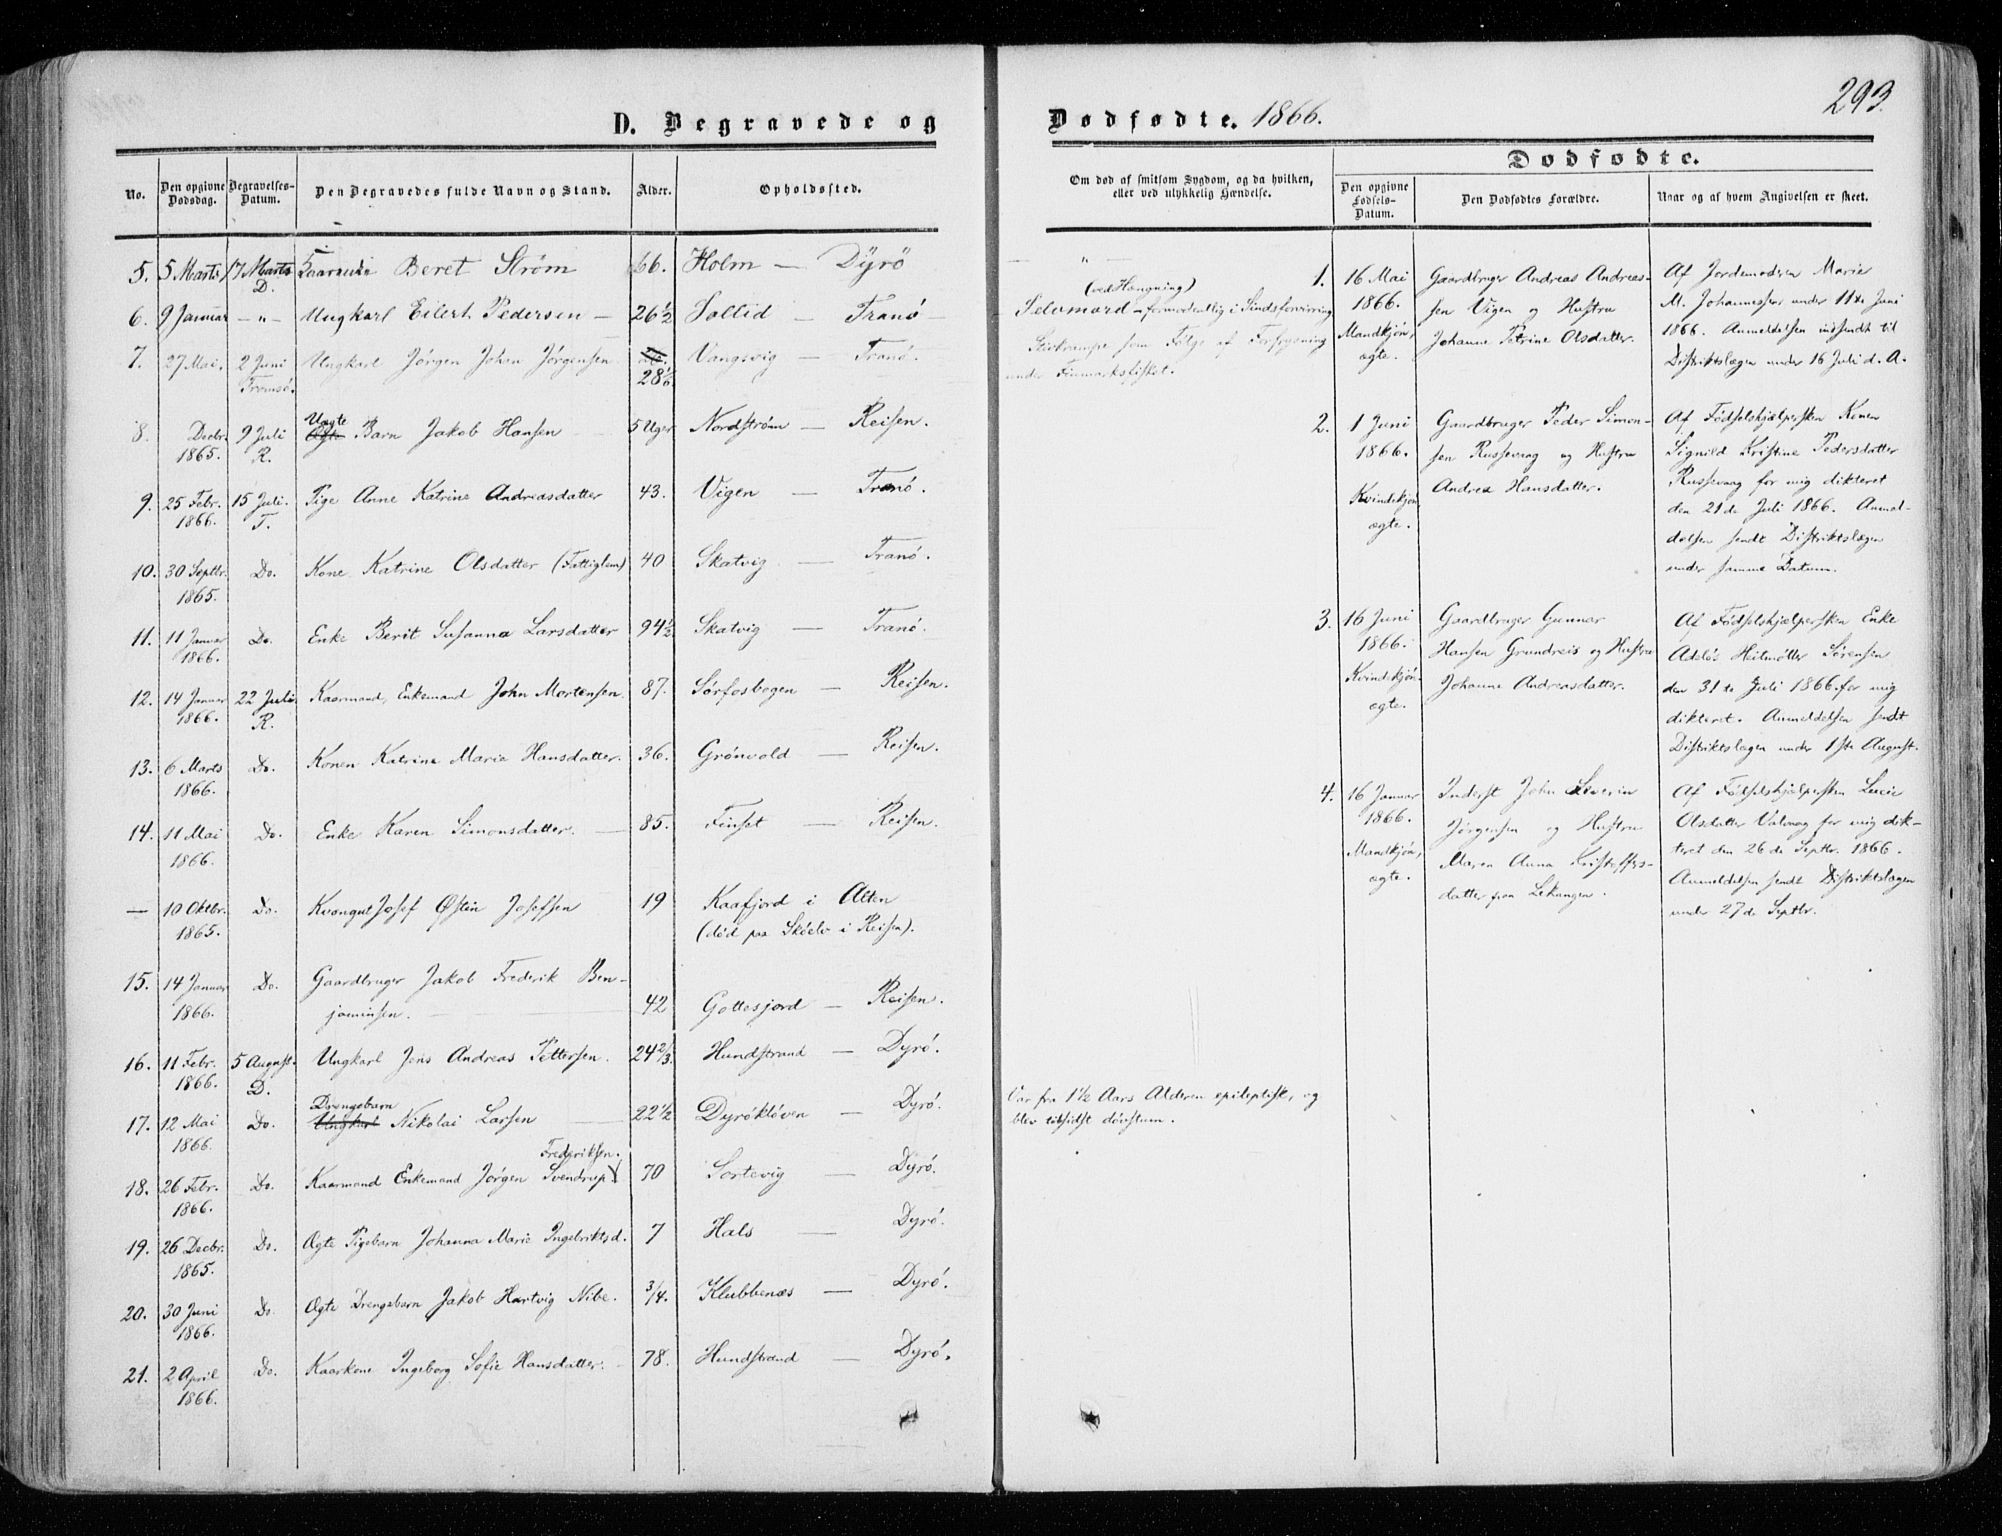 293.
D. Begravede og Dødfødte. 1866.
No.
Den opgivne Dødsdag.
Begravelses-Datum.
Den Begravedes fulde Navn og Stand.
Alder.
Opholdssted.
Om død af smitsom Sygdom, og da hvilken,
eller ved ulykkelig Hændelse.
Dødfødte.
Den opgivne Fødsels-Datum.
Den Dødfødtes Forældre.
Naar og af hvem Angivelsen er skeet.
5. 5 Marts 17 Marts D. Beret Strøm 66. Holm — Dyrö
6. 9 Januar — " — Ungkarl Eilert Pedersen — 26 1/2 Sollid — Tranö
(ved Hængning)
Selvmord — formodentlig i Sindsforvirring
7. 27 Mai. 2 Juni Tromsö. Ungkarl Jörgen Johan Jörgensen 28 1/6 Vangsvig — Tranö.
som Fölge af Forfrysning
under Finmarksfisket.
8. Decbr. 1865. 9 Juli R. Uægte Barn Jakob Hansen 5 Uger Nordström — Reisen.
9. 25 Febr. 1866. 15 Juli. T. Pige Anne Katrine Andreasdatter 43. Vigen — Tranö.
10. 30 Septbr. 1865. Do. Kone Katrine Olsdatter (Fattiglem) 40 Skatvig — Tranö.
11. 11 Januar 1866. Do. Enke Berit Susanna Larsdatter 94 1/2 Skatvig — Tranö.
12. 14 Januar 1866. 22 Juli R. Kaarmand, Enkemand John Mortensen. 87. Sörfosbogen — Reisen.
13. 6 Marts 1866. Do. Konen Katrine Maria Hansdatter. 36. Grönvold — Reisen.
14. 11 Mai 1866. Do. Enke Karen Simonsdatter. — 85. Finset — Reisen.
— 10 Oktbr. 1865. Do. Josef Østin Josefsen 19 Kaafjord i Alten
(död paa Sköelv i Reisen).
15. 14 Januar 1866. Do. Gaardbruger Jakob Frederik Ben-
jaminsen. — 42 Gottesjord — Reisen.
16. 11 Febr. 1866. 5 August. D. Ungkarl Jens Andreas Pettersen. 24 2/3. Hundstrand — Dyrö.
17. 12 Mai 1866. Do. Drengebarn Ungkarl Nikolai Larsen 22 1/2 Dyröklöven — Dyrö.
Var fra 1 1/2 Aars Alderen epileptisk, og
blev tilsidst dövstum.
18. 26 Febr. 1866. Do. Kaarmand Enkemand Jörgen Svendrup Frederiksen. 70 Sortevig — Dyrö.
19. 26 Decbr. 1865. Do. Ægte Pigebarn Johanna Marie Ingebriktsd. 7 Hals — Dyrö.
20. 30 Juni 1866. Do. Ægte Drengebarn Jakob Hartvig Nibe. 3/4. Klubbenæs — Dyrö.
21. 2 April 1866. Do. Kaarkone Ingeborg Sofie Hansdatter. 78. Hundstrand — Dyrö.
1. 16 Mai 1866. Mandkjön, ægte.
Gaardbruger Andreas Andreas-
sen Vigen og Hustru
Johanne Petrine Olsdatter.
Af Jordemoderen Marie
M. Johannessen under 11te Juni
1866. Anmeldelsen indsendt til
Distriktslægen under 16 Juli d. A.
2. 1 Juni 1866. Kvindekjön ægte.
Gaardbruger Peder Simon-
sen Russevaag og Hustru
Andrea Hansdatter.
Af Födselshjælpersken Konen
Signild Kristine Pedersdatter
Russevaag for mig dikteret
den 21de Juli 1866. Anmel-
delsen sendt Distriktslægen
under samme Datum.
3. 16 Juni 1866. Kvindekjön ægte.
Gaardbruger Gunnar
Hansen Grundreis og Hustru
Johanne Andreasdatter.
Af Födselshjælpersken Enke
Sörensen
den 31te Juli 1866 for mig
dikteret. Anmeldelsen sendt
Distriktslægen under 1ste August.
4. 16 Januar 1866. Mandkjön, ægte.
Inderst John Severin
Jörgensen og Hustru
Maren Anna Kristoffers-
datter paa Lekangen.
Af Födselshjælpersken Lucie
Olsdatter for mig dik-
teret den 26de Septbr. 1866.
Anmeldelsen sendt Distriktslægen
under 27de Septbr.